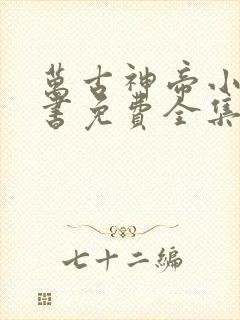 萬古神帝小
書免費全集
七十二編